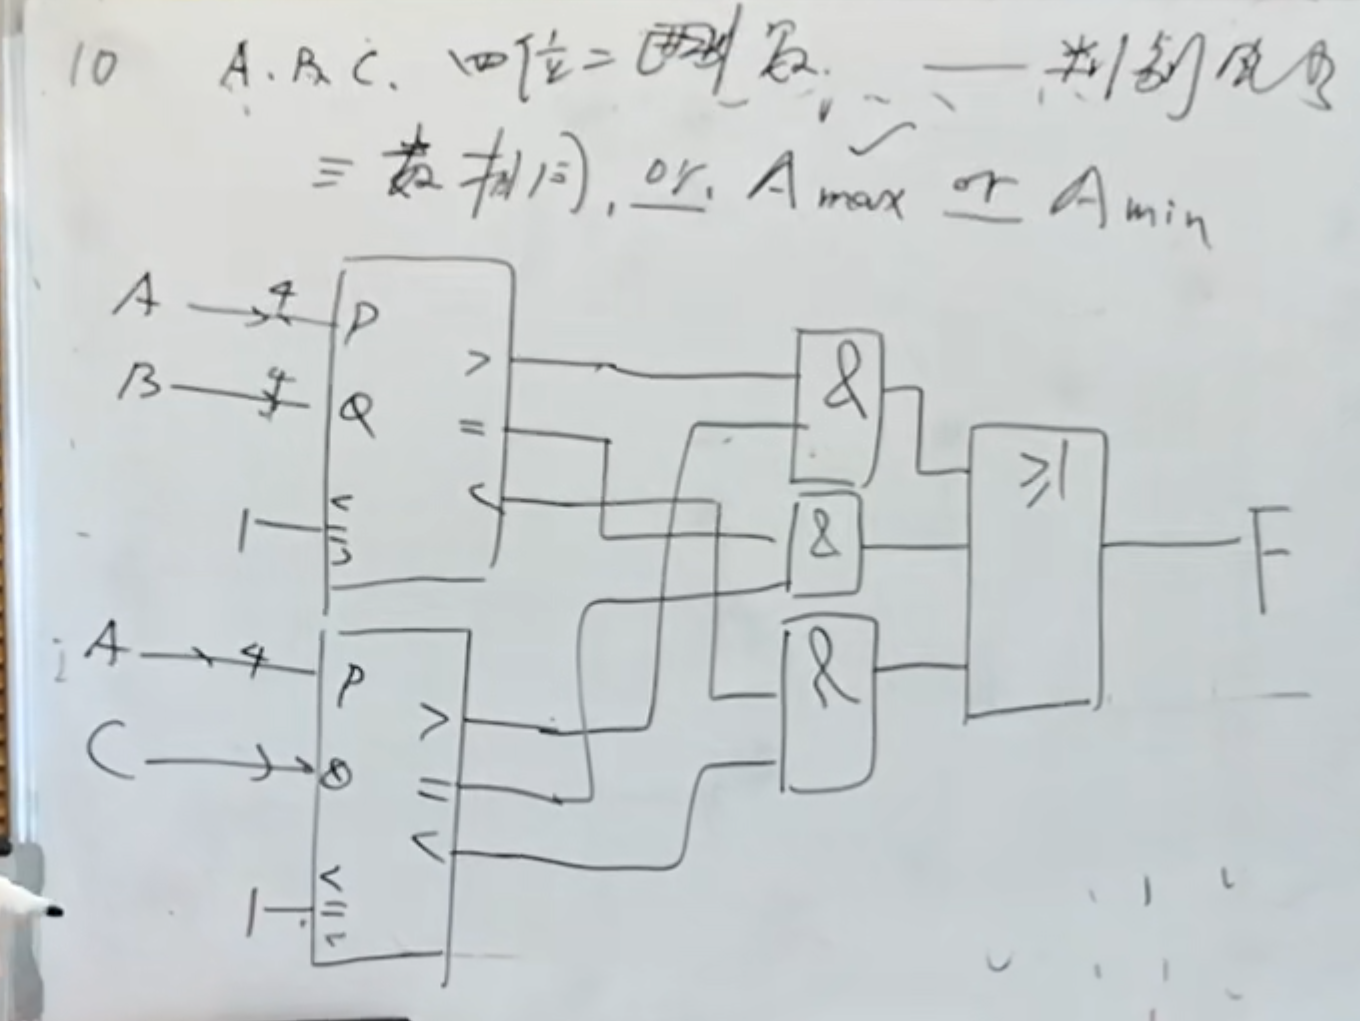 10 A.B.C. 四位=进制数. — 判别电路
三数相同, or. A max or A min
A 4 P
B 4 Q
> = <
< = >
1
A 4 P
C Q
> = <
< = >
1
&
&
&
≥1
F